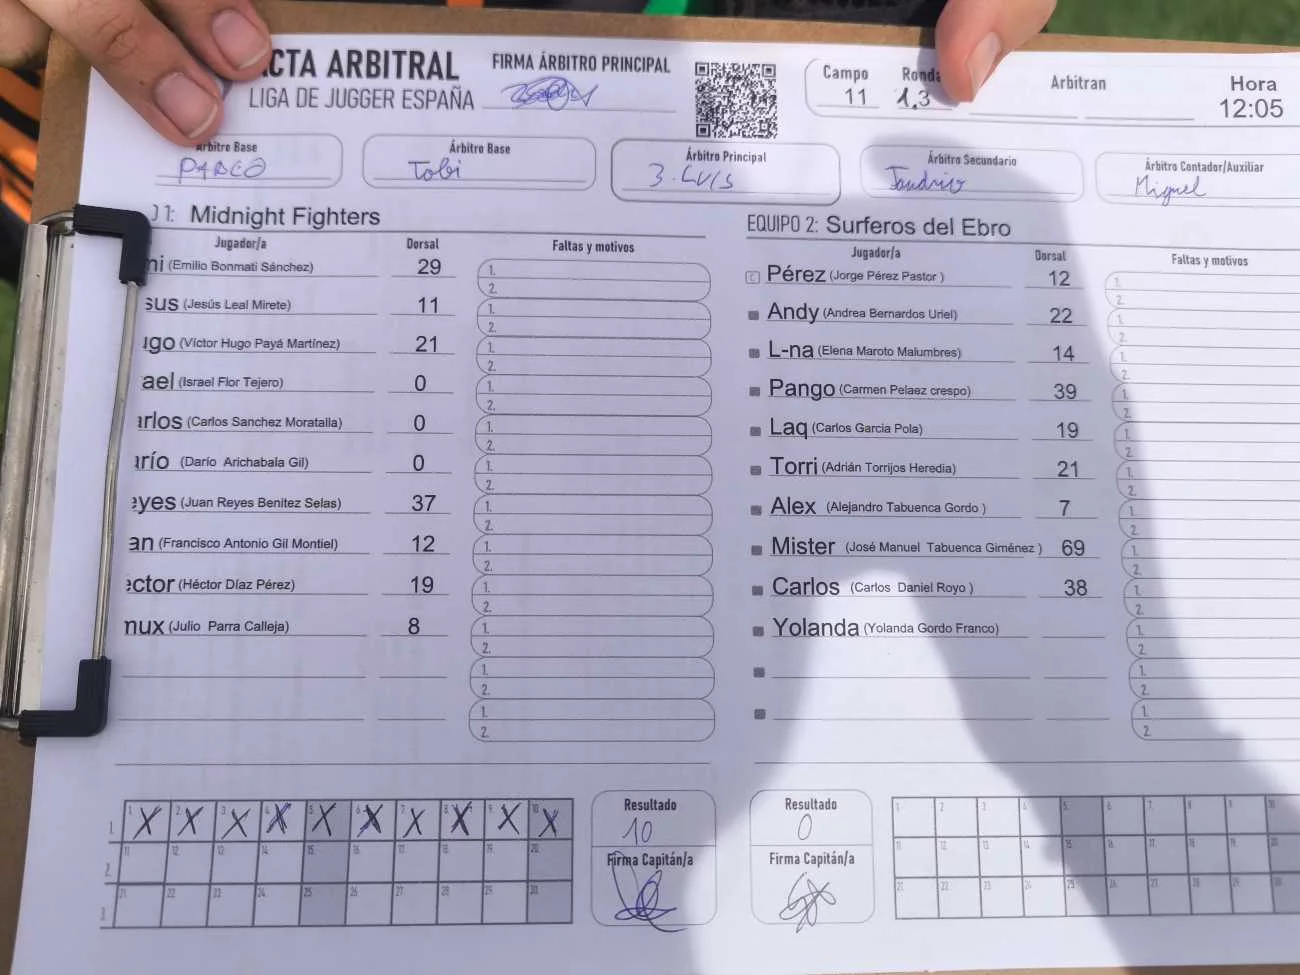 ACTA ARBITRAL
LIGA DE JUGGER ESPAÑA
FIRMA ÁRBITRO PRINCIPAL
Campo
11
Ronda
1.3
Arbitran
Hora
12:05
Árbitro Base
Árbitro Base
Tobi
Árbitro Principal
3. LUIS
Árbitro Secundario
Árbitro Contador/Auxiliar
Miguel
O 1: Midnight Fighters
Jugador/a Dorsal Faltas y motivos
mi (Emilio Bonmati Sánchez) 29 1. 2.
sus (Jesús Leal Mirete) 11 1. 2.
ugo (Víctor Hugo Payá Martínez) 21 1. 2.
ael (Israel Flor Tejero) 0 1. 2.
arlos (Carlos Sanchez Moratalla) 0 1. 2.
arío (Darío Arichabala Gil) 0 1. 2.
eyes (Juan Reyes Benitez Selas) 37 1. 2.
an (Francisco Antonio Gil Montiel) 12 1. 2.
éctor (Héctor Díaz Pérez) 19 1. 2.
nux (Julio Parra Calleja) 8 1. 2.
1. 2.
1. 2.
EQUIPO 2: Surferos del Ebro
Jugador/a Dorsal Faltas y motivos
C Pérez (Jorge Pérez Pastor ) 12 1. 2.
Andy (Andrea Bernardos Uriel) 22 1. 2.
L-na (Elena Maroto Malumbres) 14 1. 2.
Pango (Carmen Pelaez crespo) 39 1. 2.
Laq (Carlos Garcia Pola) 19 1. 2.
Torri (Adrián Torrijos Heredia) 21 1. 2.
Alex (Alejandro Tabuenca Gordo ) 7 1. 2.
Mister (José Manuel Tabuenca Giménez ) 69 1. 2.
Carlos (Carlos Daniel Royo ) 38 1. 2.
Yolanda (Yolanda Gordo Franco) 1. 2.
1. 2.
1. 2.
1. 1 X 2 X 3 X 4 X 5 X 6 X 7 X 8 X 9 X 10 X
2. 11 12 13 14 15 16 17 18 19 20
3. 21 22 23 24 25 26 27 28 29 30
Resultado
10
Firma Capitán/a
Resultado
0
Firma Capitán/a
1 2 3 4 5 6 7 8 9 10
11 12 13 14 15 16 17 18 19 20
21 22 23 24 25 26 27 28 29 30